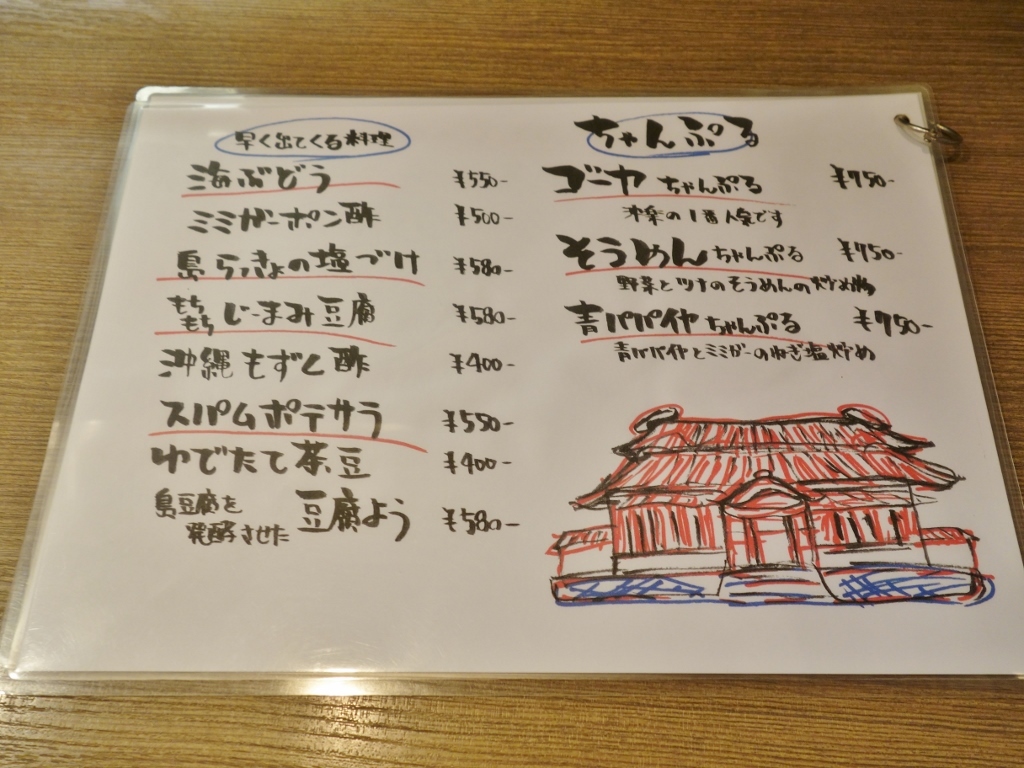 早く出てくる料理
海ぶどう ¥550-
ミミガーポン酢 ¥500-
島らっきょの塩づけ ¥580-
もちもち じーまみ豆腐 ¥580-
沖縄もずく酢 ¥400-
スパムポテサラ ¥550-
ゆでたて茶豆 ¥400-
島豆腐を
発酵させた 豆腐よう ¥580-
ちゃんぷる
ゴーヤ ちゃんぷる ¥750-
沖楽の1番人気です
そうめん ちゃんぷる ¥750-
野菜とツナのそうめんの炒め物
青パパイヤ ちゃんぷる ¥750-
青パパイヤとミミガーのねぎ塩炒め